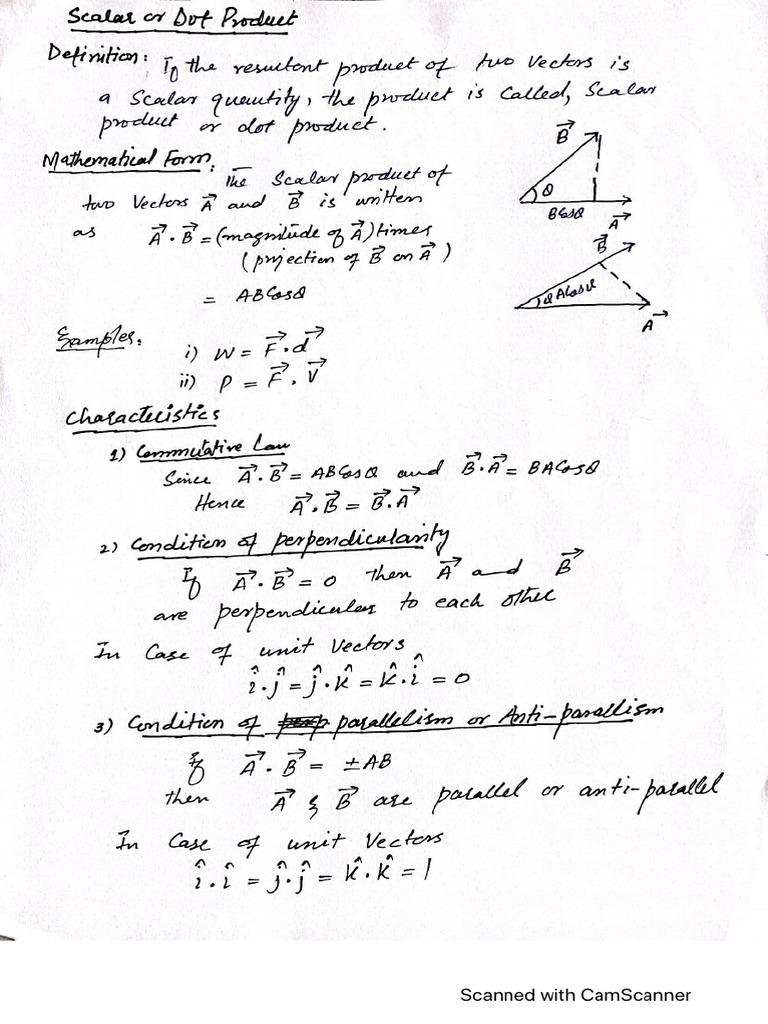 Scalar or Dot Product
Definition: If the resultent product of two vectors is
a scalar quantity, the product is called, scalar
product or dot product.
Mathematical Form: The scalar product of
two vectors A⃗ and B⃗ is written
as A⃗ . B⃗ = (magnitude of A⃗) times
(projection of B⃗ on A⃗)
= ABCosθ
B⃗
θ
BCosθ
A⃗
B⃗
θ ACosθ
A⃗
Examples.
i) W = F⃗ . d⃗
ii) P = F⃗ . V⃗
Characteristics
1) Commutative Law
Since A⃗ . B⃗ = ABCosθ and B⃗ . A⃗ = BACosθ
Hence A⃗ . B⃗ = B⃗ . A⃗
2) Condition of perpendicularity
If A⃗ . B⃗ = 0 then A⃗ and B⃗
are perpendicular to each other
In Case of unit vectors
î . ĵ = ĵ . k̂ = k̂ . î = 0
3) Condition of parallelism or Anti-parallism
If A⃗ . B⃗ = ±AB
then A⃗ & B⃗ are parallel or anti-parallel
In Case of unit vectors
î . î = ĵ . ĵ = k̂ . k̂ = 1
Scanned with CamScanner